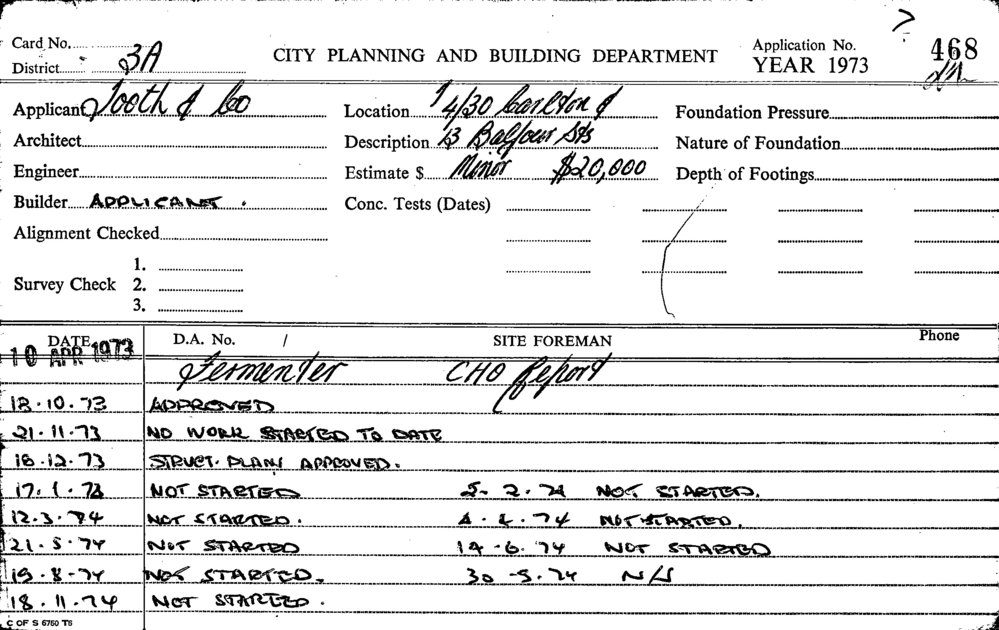 Card No. CITY PLANNING AND BUILDING DEPARTMENT Application No. 468
District 3A YEAR 1973
Applicant Tooth & Co Location 14/30 Carlton & Foundation Pressure
Architect Description 13 Balfour Sts Nature of Foundation
Engineer Estimate $ Minor $20,000 Depth of Footings
Builder APPLICANT. Conc. Tests (Dates)
Alignment Checked
1.
Survey Check 2.
3.
DATE D.A. No. / SITE FOREMAN Phone
10 APR 1973 Fermenter CHO Report
18.10.73 APPROVED
21.11.73 NO WORK STARTED TO DATE
18.12.73 STRUCT. PLANS APPROVED.
17.1.74 NOT STARTED 5.2.74 NOT STARTED.
12.3.74 NOT STARTED. 4.4.74 NOT STARTED.
21.5.74 NOT STARTED 14.6.74 NOT STARTED
19.8.74 NOT STARTED. 30.9.74 N/S
18.11.74 NOT STARTED.
C OF S 6760 TS